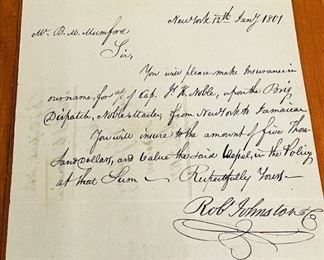 New York 12th Jany 1801
Mr. B. M. Mumford
Sir,
You will please make Insurance in
our name, for a/c of Cap. J. K. Noble, upon the Brig
Dispatch, Noble Master, from New York to Jamaica
You will insure to the amount of five Thou
sand Dollars, and value the said Vessel, in the Policy
at that Sum — Respectfully Yours —
Rob Johnston & Co